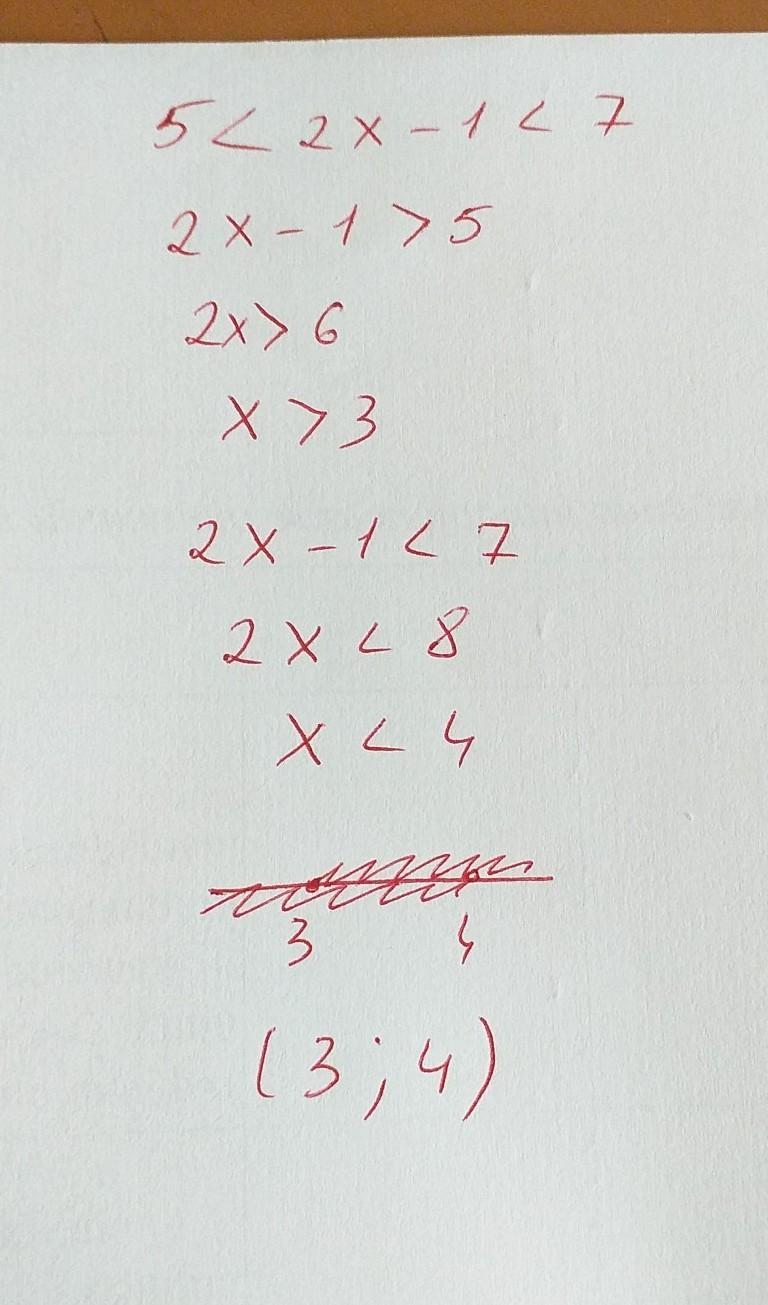 5 < 2x - 1 < 7
2x - 1 > 5
2x > 6
x > 3
2x - 1 < 7
2x < 8
x < 4
3 4
(3; 4)